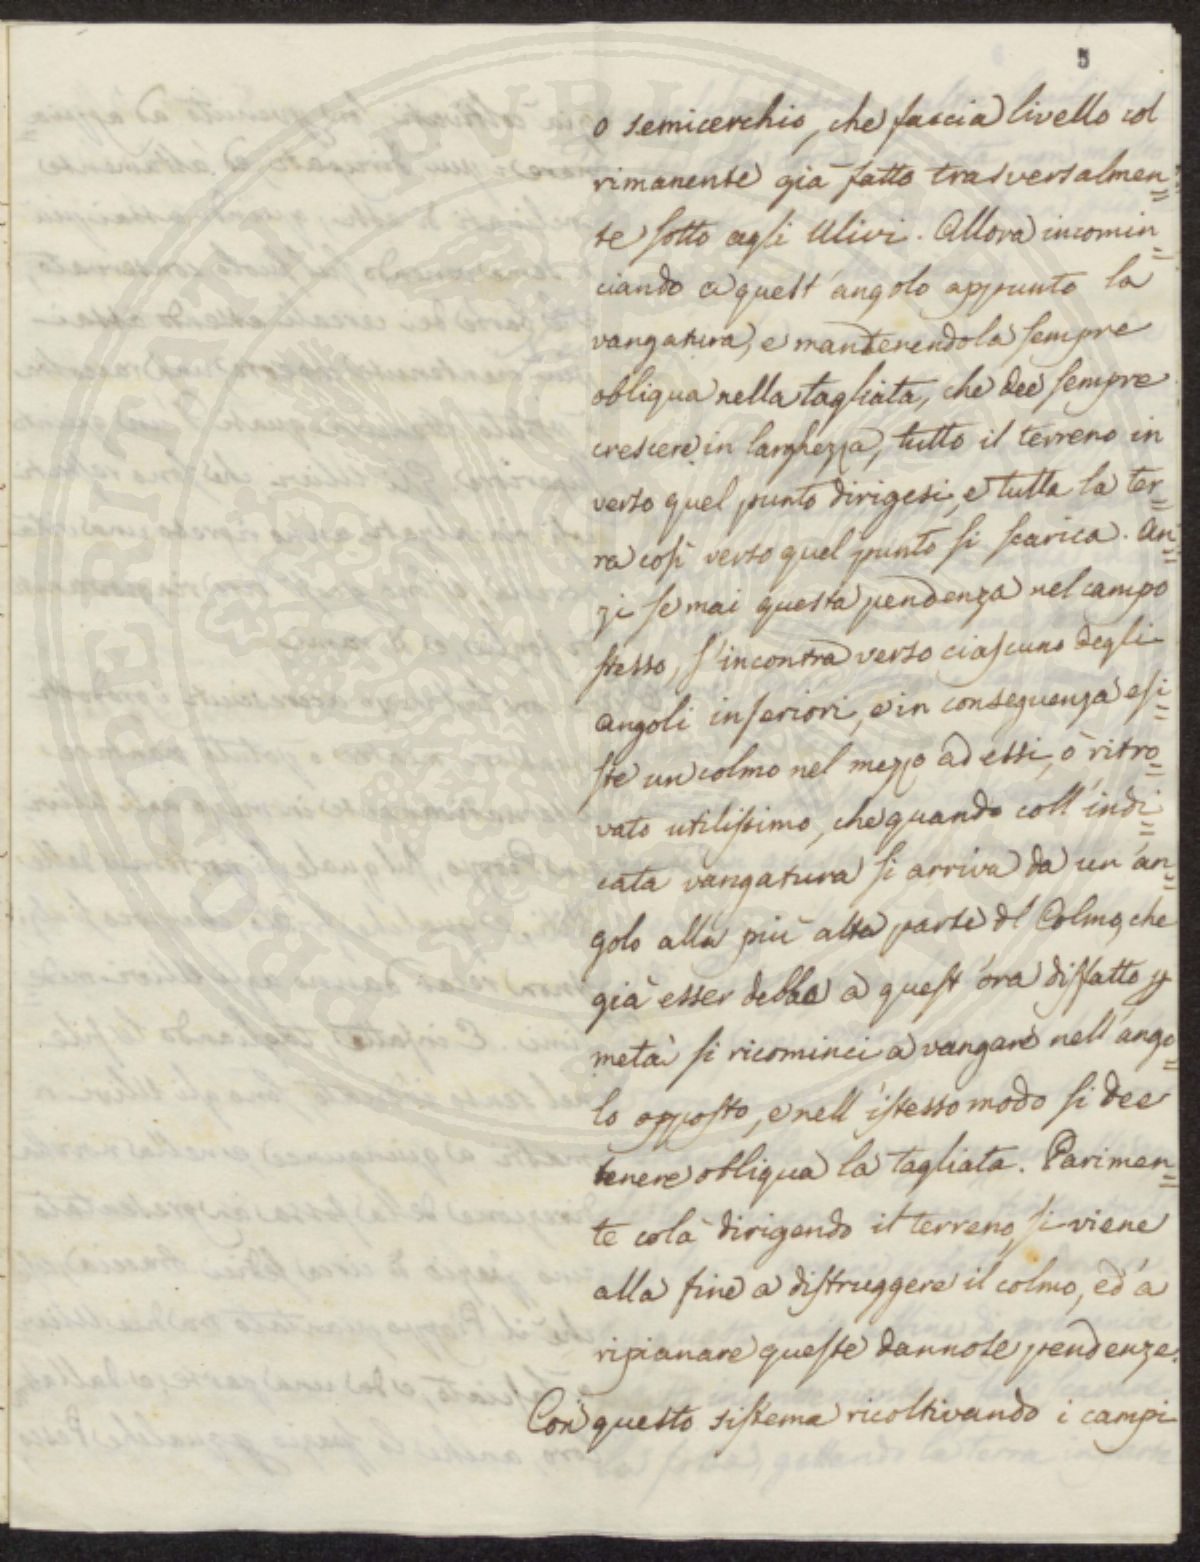 5
o semicerchio, che faccia livello col
rimanente già fatto trasversalmen=
te sotto agli Ulivi. Allora incomin=
ciando a quest'angolo appunto la
vangatura, e mantenendola sempre
obliqua nella tagliata, che dee sempre
crescere in larghezza, tutto il terreno in
verso quel punto dirigesi, e tutta la ter=
ra così verso quel punto si scarica. An=
zi se mai questa pendenza nel campo
stesso, s'incontra verso ciascuno degli
angoli inferiori, e in conseguenza esi=
ste un colmo nel mezzo ad essi, ò ritro=
vato utilissimo, che quando coll'indi=
cata vangatura si arriva da un an=
golo alla più alta parte del Colmo, che
già esser debba a quest'ora disfatto p
metà si ricominci a vangare nell'ango=
lo opposto, e nell'istesso modo si dee
tenere obliqua la tagliata. Parimen=
te colà dirigendo il terreno, si viene
alla fine a distruggere il colmo, ed a
ripianare queste dannose pendenze.
Con questo sistema ricoltivando i campi